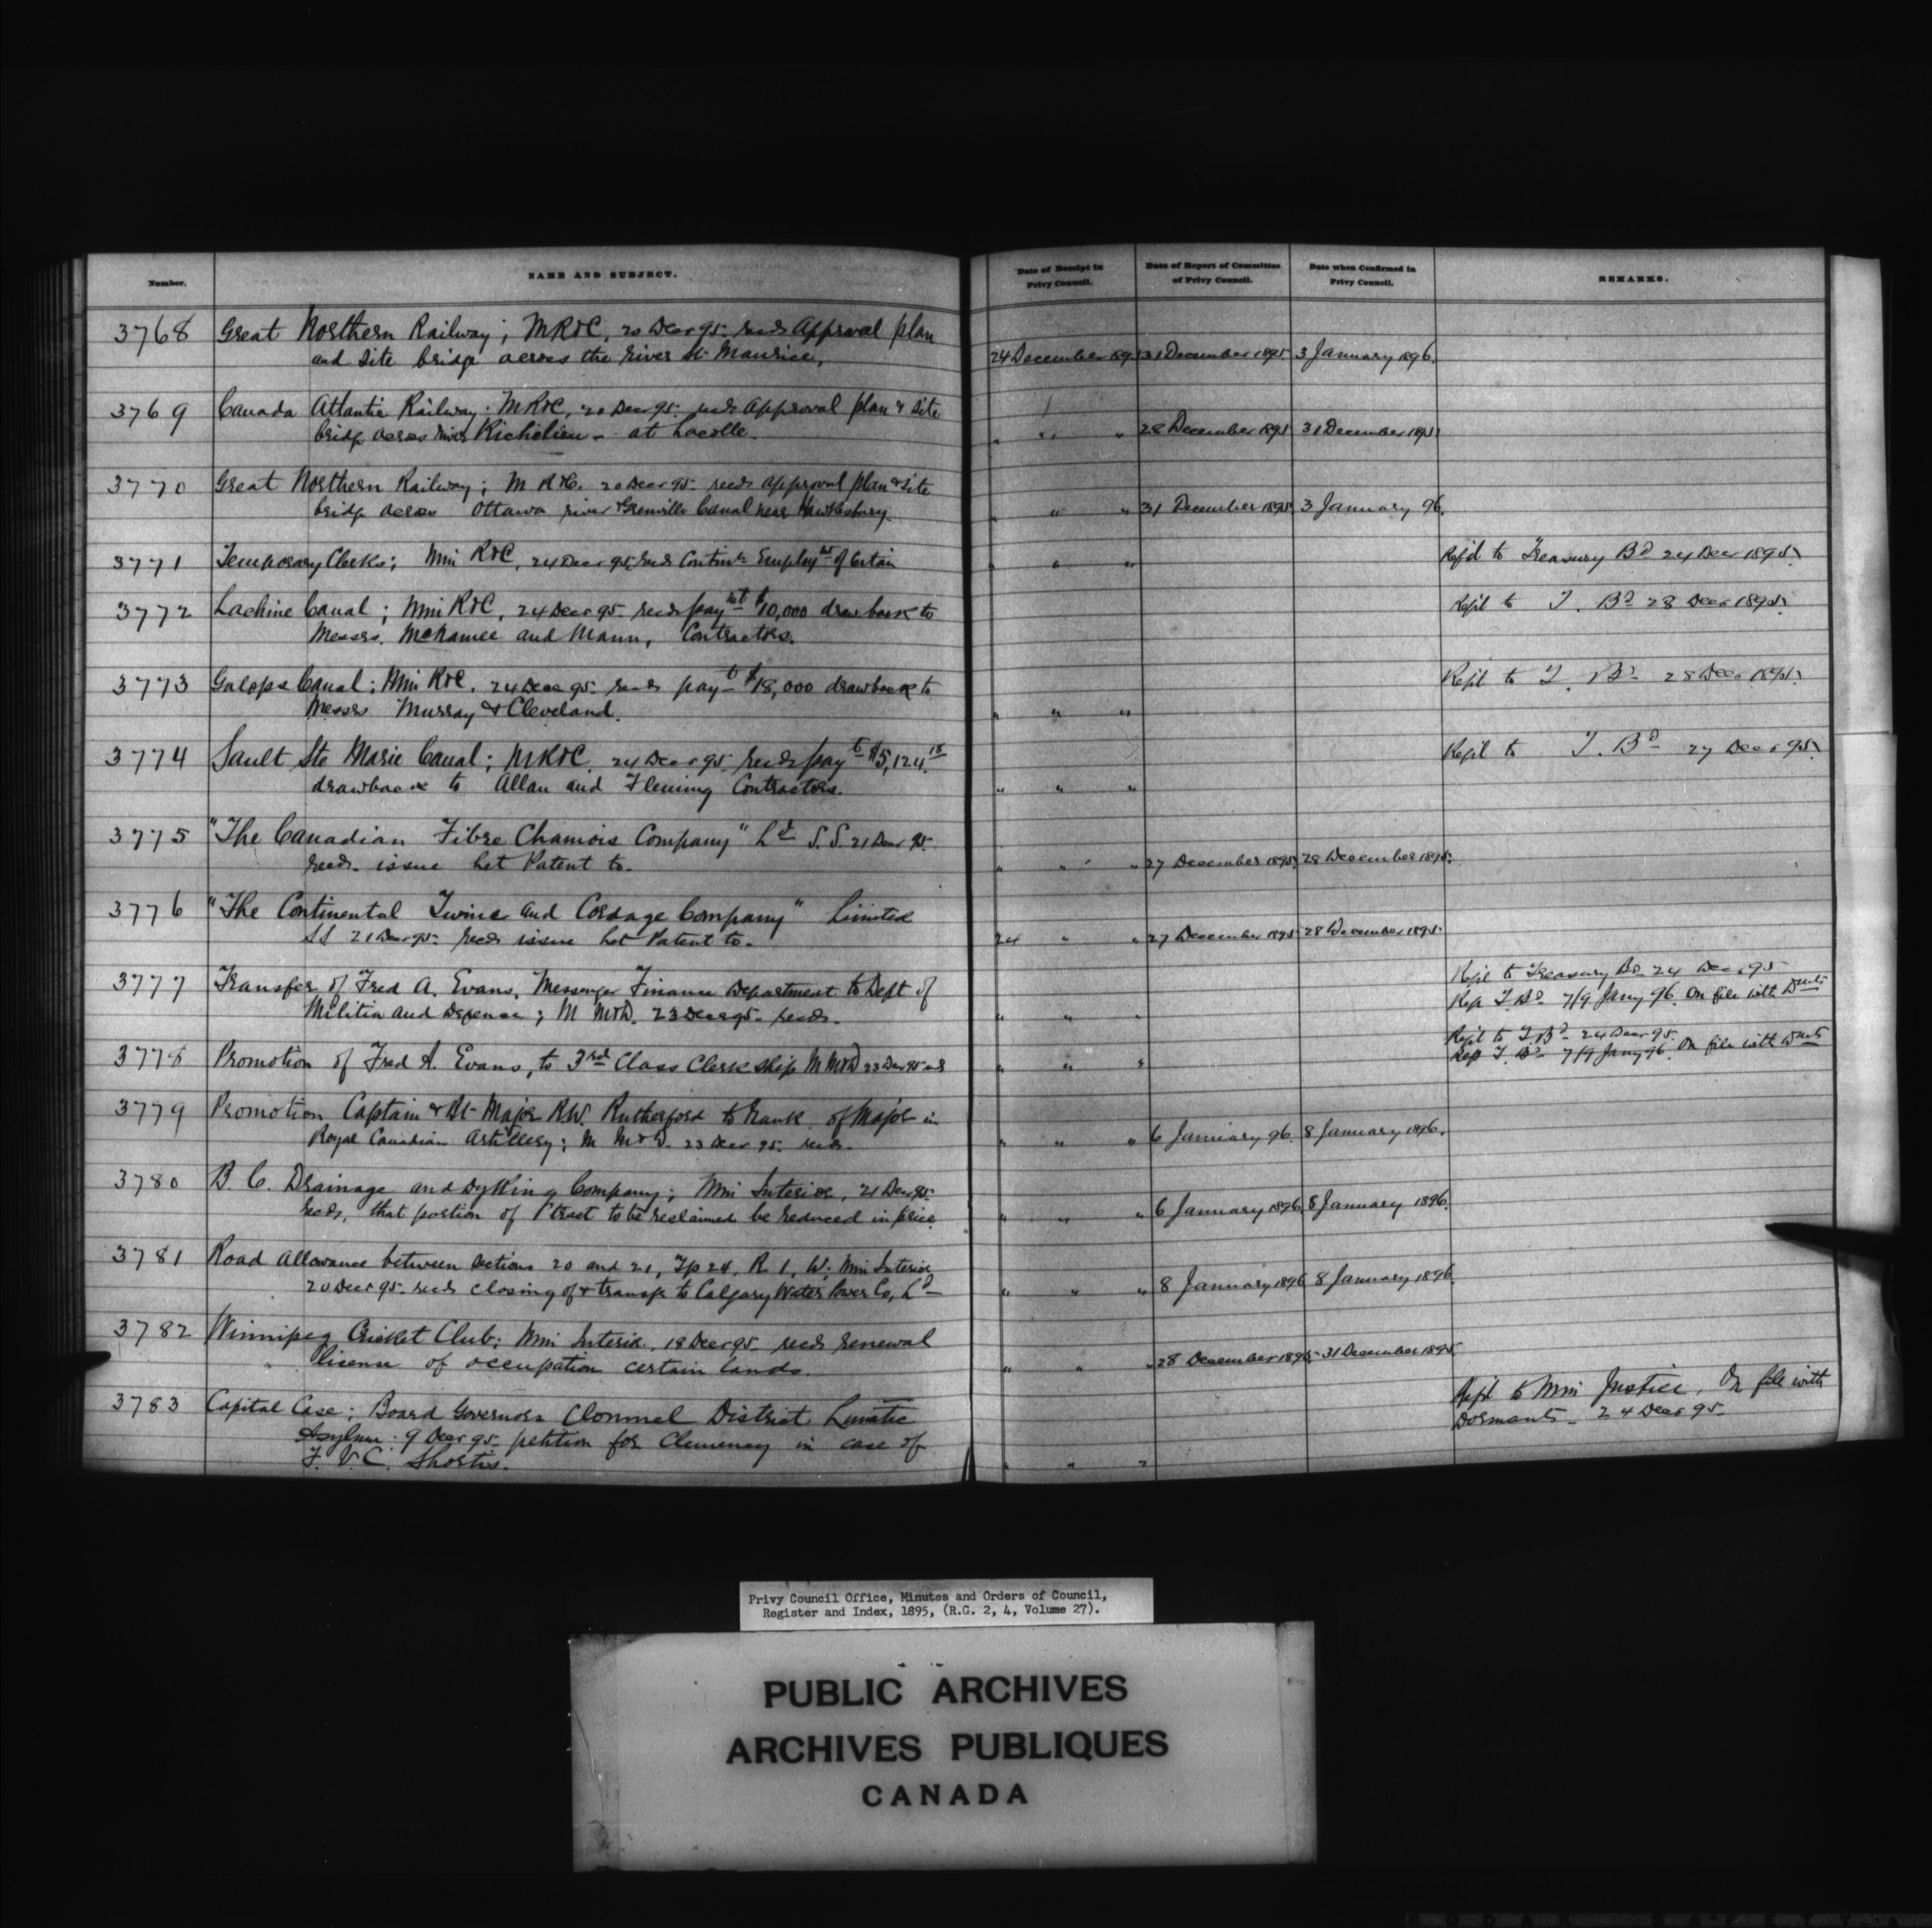 Number.
NAME AND SUBJECT.
Date of Receipt in Privy Council.
Date of Report of Committee of Privy Council.
Date when Confirmed in Privy Council.
REMARKS.
3768 Great Northern Railway; M R & C, 20 Decr 95 recds Approval plan
and site bridge across the river St Maurice,
24 December 1895 31 December 1895 3 January 1896.
3769 Canada Atlantic Railway. M R & C, 20 Decr 95. recds Approval plan & site
bridge across river Richelieu - at Lacolle.
" " " 28 December 1895 31 December 1895
3770 Great Northern Railway; M R & C. 20 Decr 95. recds approval plan & site
bridge across Ottawa river & Grenville Canal near Hawkesbury.
" " " 31 December 1895 3 January 96.
3771 Temporary Clerks; Min R & C, 24 Decr 95 recds Employt of Certain
" " " Refd to Treasury Bd 24 Decr 1895
3772 Lachine Canal; Min R & C, 24 Decr 95 recds paymt $10,000 drawback to
Messrs. McNamee and Mann, Contractors.
Refd to T. Bd 28 Decr 1895.
3773 Galops Canal; Min R & C. 24 Decr 95. recds payt $18,000 drawback to
Messrs Murray & Cleveland.
" " " Refd to T. Bd 28 Decr 1895.
3774 Sault Ste Marie Canal; M R & C 24 Decr 95 recds payt $5,124.18
drawback to Allan and Fleming Contractors.
" " " Refd to T. Bd 27 Decr 95
3775 "The Canadian Fibre Chamois Company" Ld S.S. 21 Decr 95.
recds. issue Let Patent to.
" " " 27 December 1895. 28 December 1895.
3776 "The Continental Twine and Cordage Company" Limited
SS 21 Decr 95. recds issue Let Patent to.
24 " " 27 December 1895 28 December 1895.
3777 Transfer of Fred A. Evans, Messenger Finance Department to Dept of
Militia and Defence; M M & D. 23 Decr 95. recds.
" " " Refd to Treasury Bd 24 Decr 95
Rep T. Bd 7/9 Jany 96. On file with
3778 Promotion of Fred A. Evans, to 3rd Class Clerkship M M & D 23 Decr 95
" " " Refd to T. Bd 24 Decr 95.
Rep T. Bd 7/9 Jany 96. On file with
3779 Promotion Captain & Bt Major R.W. Rutherford to rank of Major in
Royal Canadian Artillery; M M & D. 23 Decr 95. recds.
" " " 6 January 96. 8 January 1896.
3780 B. C. Drainage and Dyking Company; Min Interior, 21 Decr 95
recds, that portion of tract to be reclaimed be reduced in price
" " " 6 January 1896 8 January 1896.
3781 Road Allowance between Sections 20 and 21, Tp 24, R. 1, W; Min Interior
20 Decr 95. recds closing of & transfr to Calgary Water Power Co, Ld
" " " 8 January 1896 8 January 1896.
3782 Winnipeg Cricket Club; Min Interior. 18 Decr 95. recds renewal
license of occupation certain lands.
" " " 28 December 1895. 31 December 1895.
3783 Capital Case; Board Governors Clonmel District Lunatic
Asylum: 9 Decr 95. petition for Clemency in case of
F. V. C. Shortis.
" " " Refd to Min Justice, On file with
Dormants - 24 Decr 95
Privy Council Office, Minutes and Orders of Council,
Register and Index, 1895, (R.G. 2, 4, Volume 27).
PUBLIC ARCHIVES
ARCHIVES PUBLIQUES
CANADA